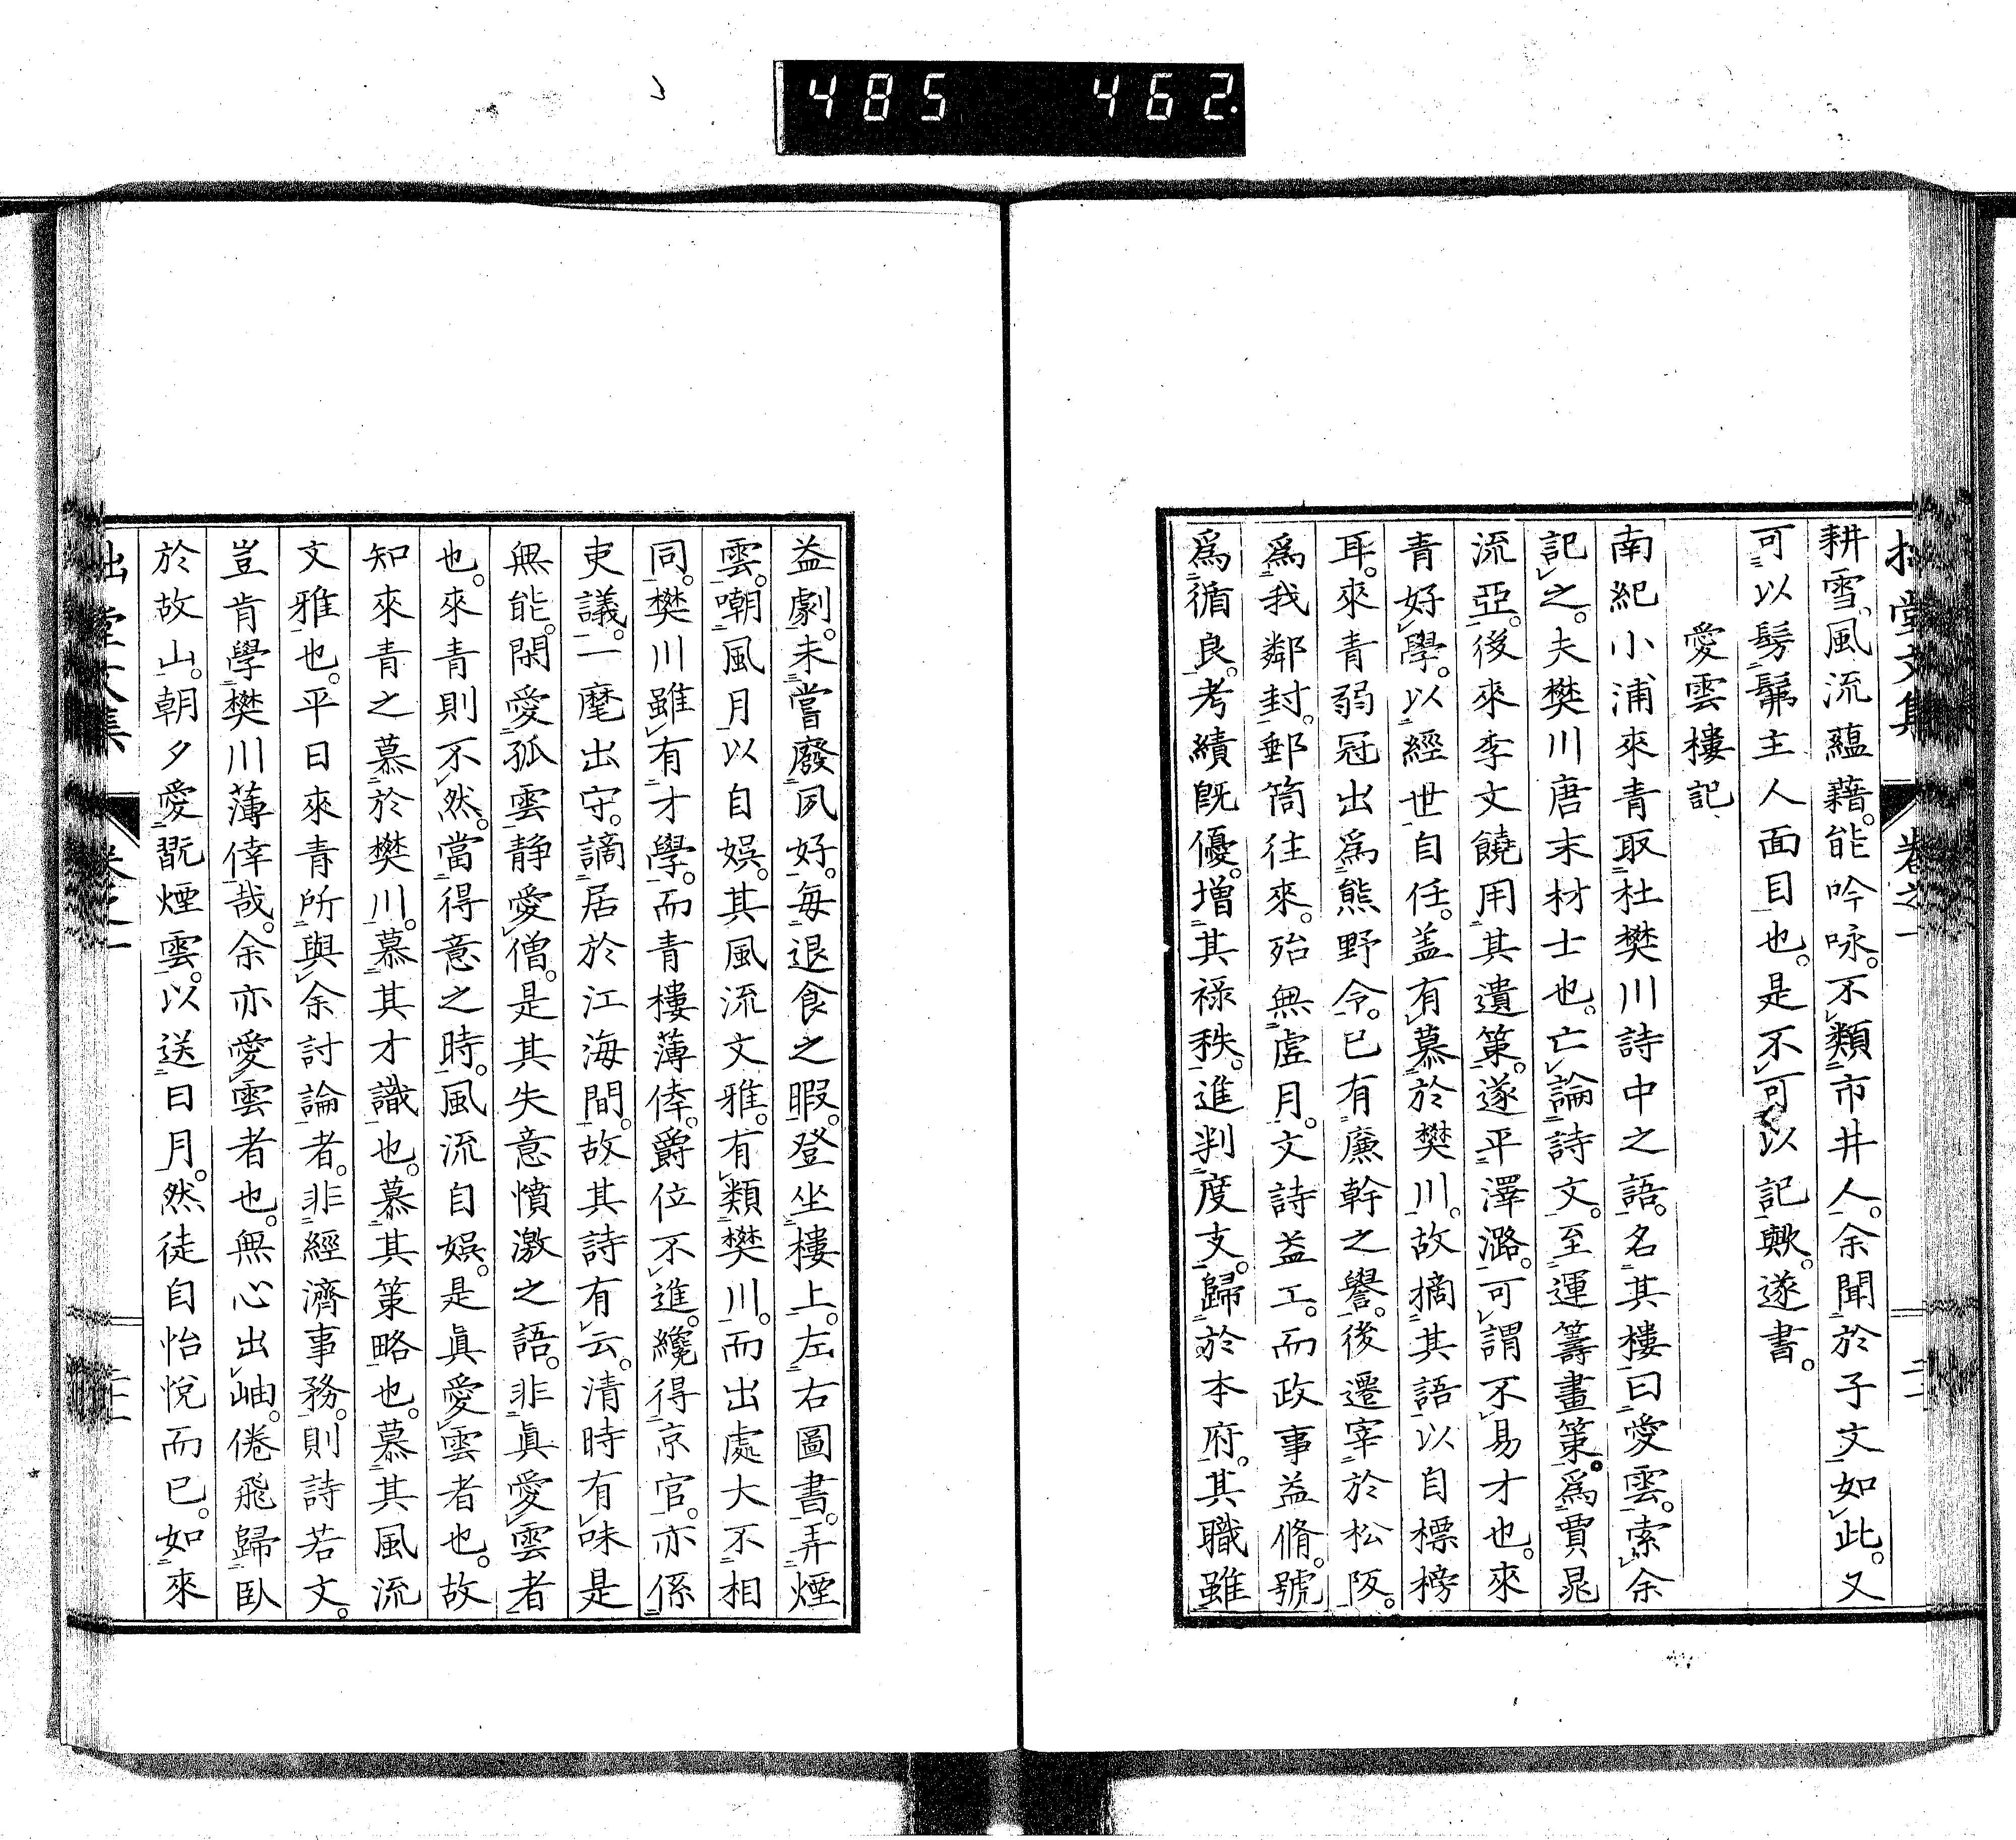 485 462
拙堂文集 卷之一
耕雪風流蘊藉。能吟咏。不類市井人。余聞於子文如此。又
可以髣髴主人面目也。是不可以記歟。遂書。
愛雲樓記
南紀小浦來青取杜樊川詩中之語。名其樓曰愛雲。索余
記之。夫樊川唐末材士也。亡論詩文。至運籌畫策。爲賈晁
流亞。後來李文饒用其遺策。遂平澤潞。可謂不易才也。來
青好學。以經世自任。盖有慕於樊川。故摘其語以自標榜
耳。來青弱冠出爲熊野令。已有廉幹之譽。後遷宰於松阪。
爲我鄰封。郵筒往來。殆無虛月。文詩益工。而政事益脩。號
爲循良。考績既優。增其祿秩。進判度支。歸於本府。其職雖
益劇。未嘗廢夙好。每退食之暇。登坐樓上。左右圖書。弄煙
雲。嘲風月以自娛。其風流文雅。有類樊川。而出處大不相
同。樊川雖有才學。而青樓薄倖。爵位不進。纔得京官。亦係
吏議。一麾出守。謫居於江海間。故其詩有云。清時有味是
無能。閑愛孤雲静愛僧。是其失意憤激之語。非眞愛雲者
也。來青則不然。當得意之時。風流自娛。是眞愛雲者也。故
知來青之慕於樊川。慕其才識也。慕其策略也。慕其風流
文雅也。平日來青所與余討論者。非經濟事務。則詩若文。
豈肯學樊川薄倖哉。余亦愛雲者也。無心出岫。倦飛歸臥
於故山。朝夕愛翫煙雲。以送日月。然徒自怡悅而已。如來
拙堂文集 卷之一